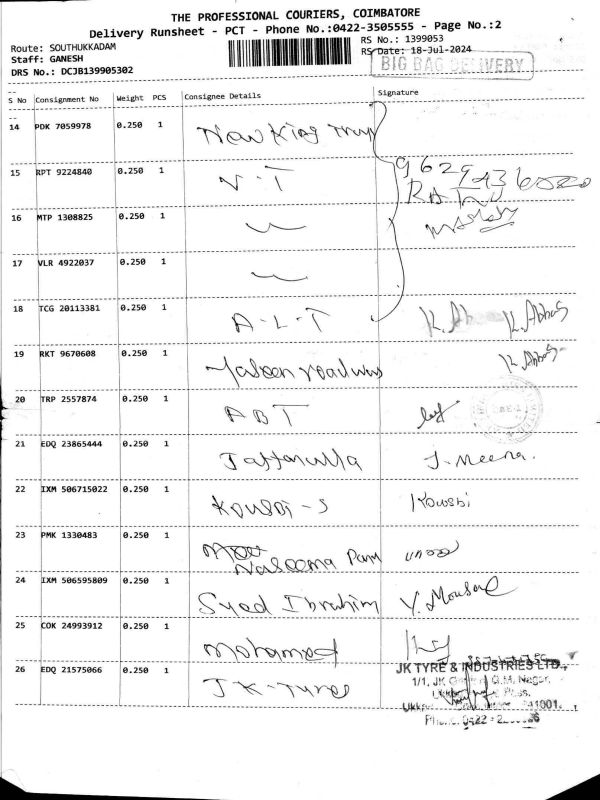 THE PROFESSIONAL COURIERS, COIMBATORE
Delivery Runsheet - PCT - Phone No.:0422-3505555 - Page No.:2
Route: SOUTHUKKADAM
Staff: GANESH
DRS No.: DCJB139905302
RS No.: 1399053
RS Date: 18-Jul-2024
BIG BAG DELIVERY
S No Consignment No Weight PCS Consignee Details Signature
14 PDK 7059978 0.250 1 New King
15 RPT 9224840 0.250 1 N-T
16 MTP 1308825 0.250 1
17 VLR 4922037 0.250 1
18 TCG 20113381 0.250 1 A-L-T K. Abbas K. Abbas
19 RKT 9670608 0.250 1 K. Abbas
20 TRP 2557874 0.250 1 ABT
21 EDQ 23865444 0.250 1 Jaffarulla J. Meena.
22 IXM 506715022 0.250 1 Kousbi-S Kousbi
23 PMK 1330483 0.250 1 Naseema
24 IXM 506595809 0.250 1 Syed Ibrahim
25 COK 24993912 0.250 1 Mohamed
26 EDQ 21575066 0.250 1 JK-Tyres
JK TYRE & INDUSTRIES LTD.,
1/1, JK G.M. Nagar,